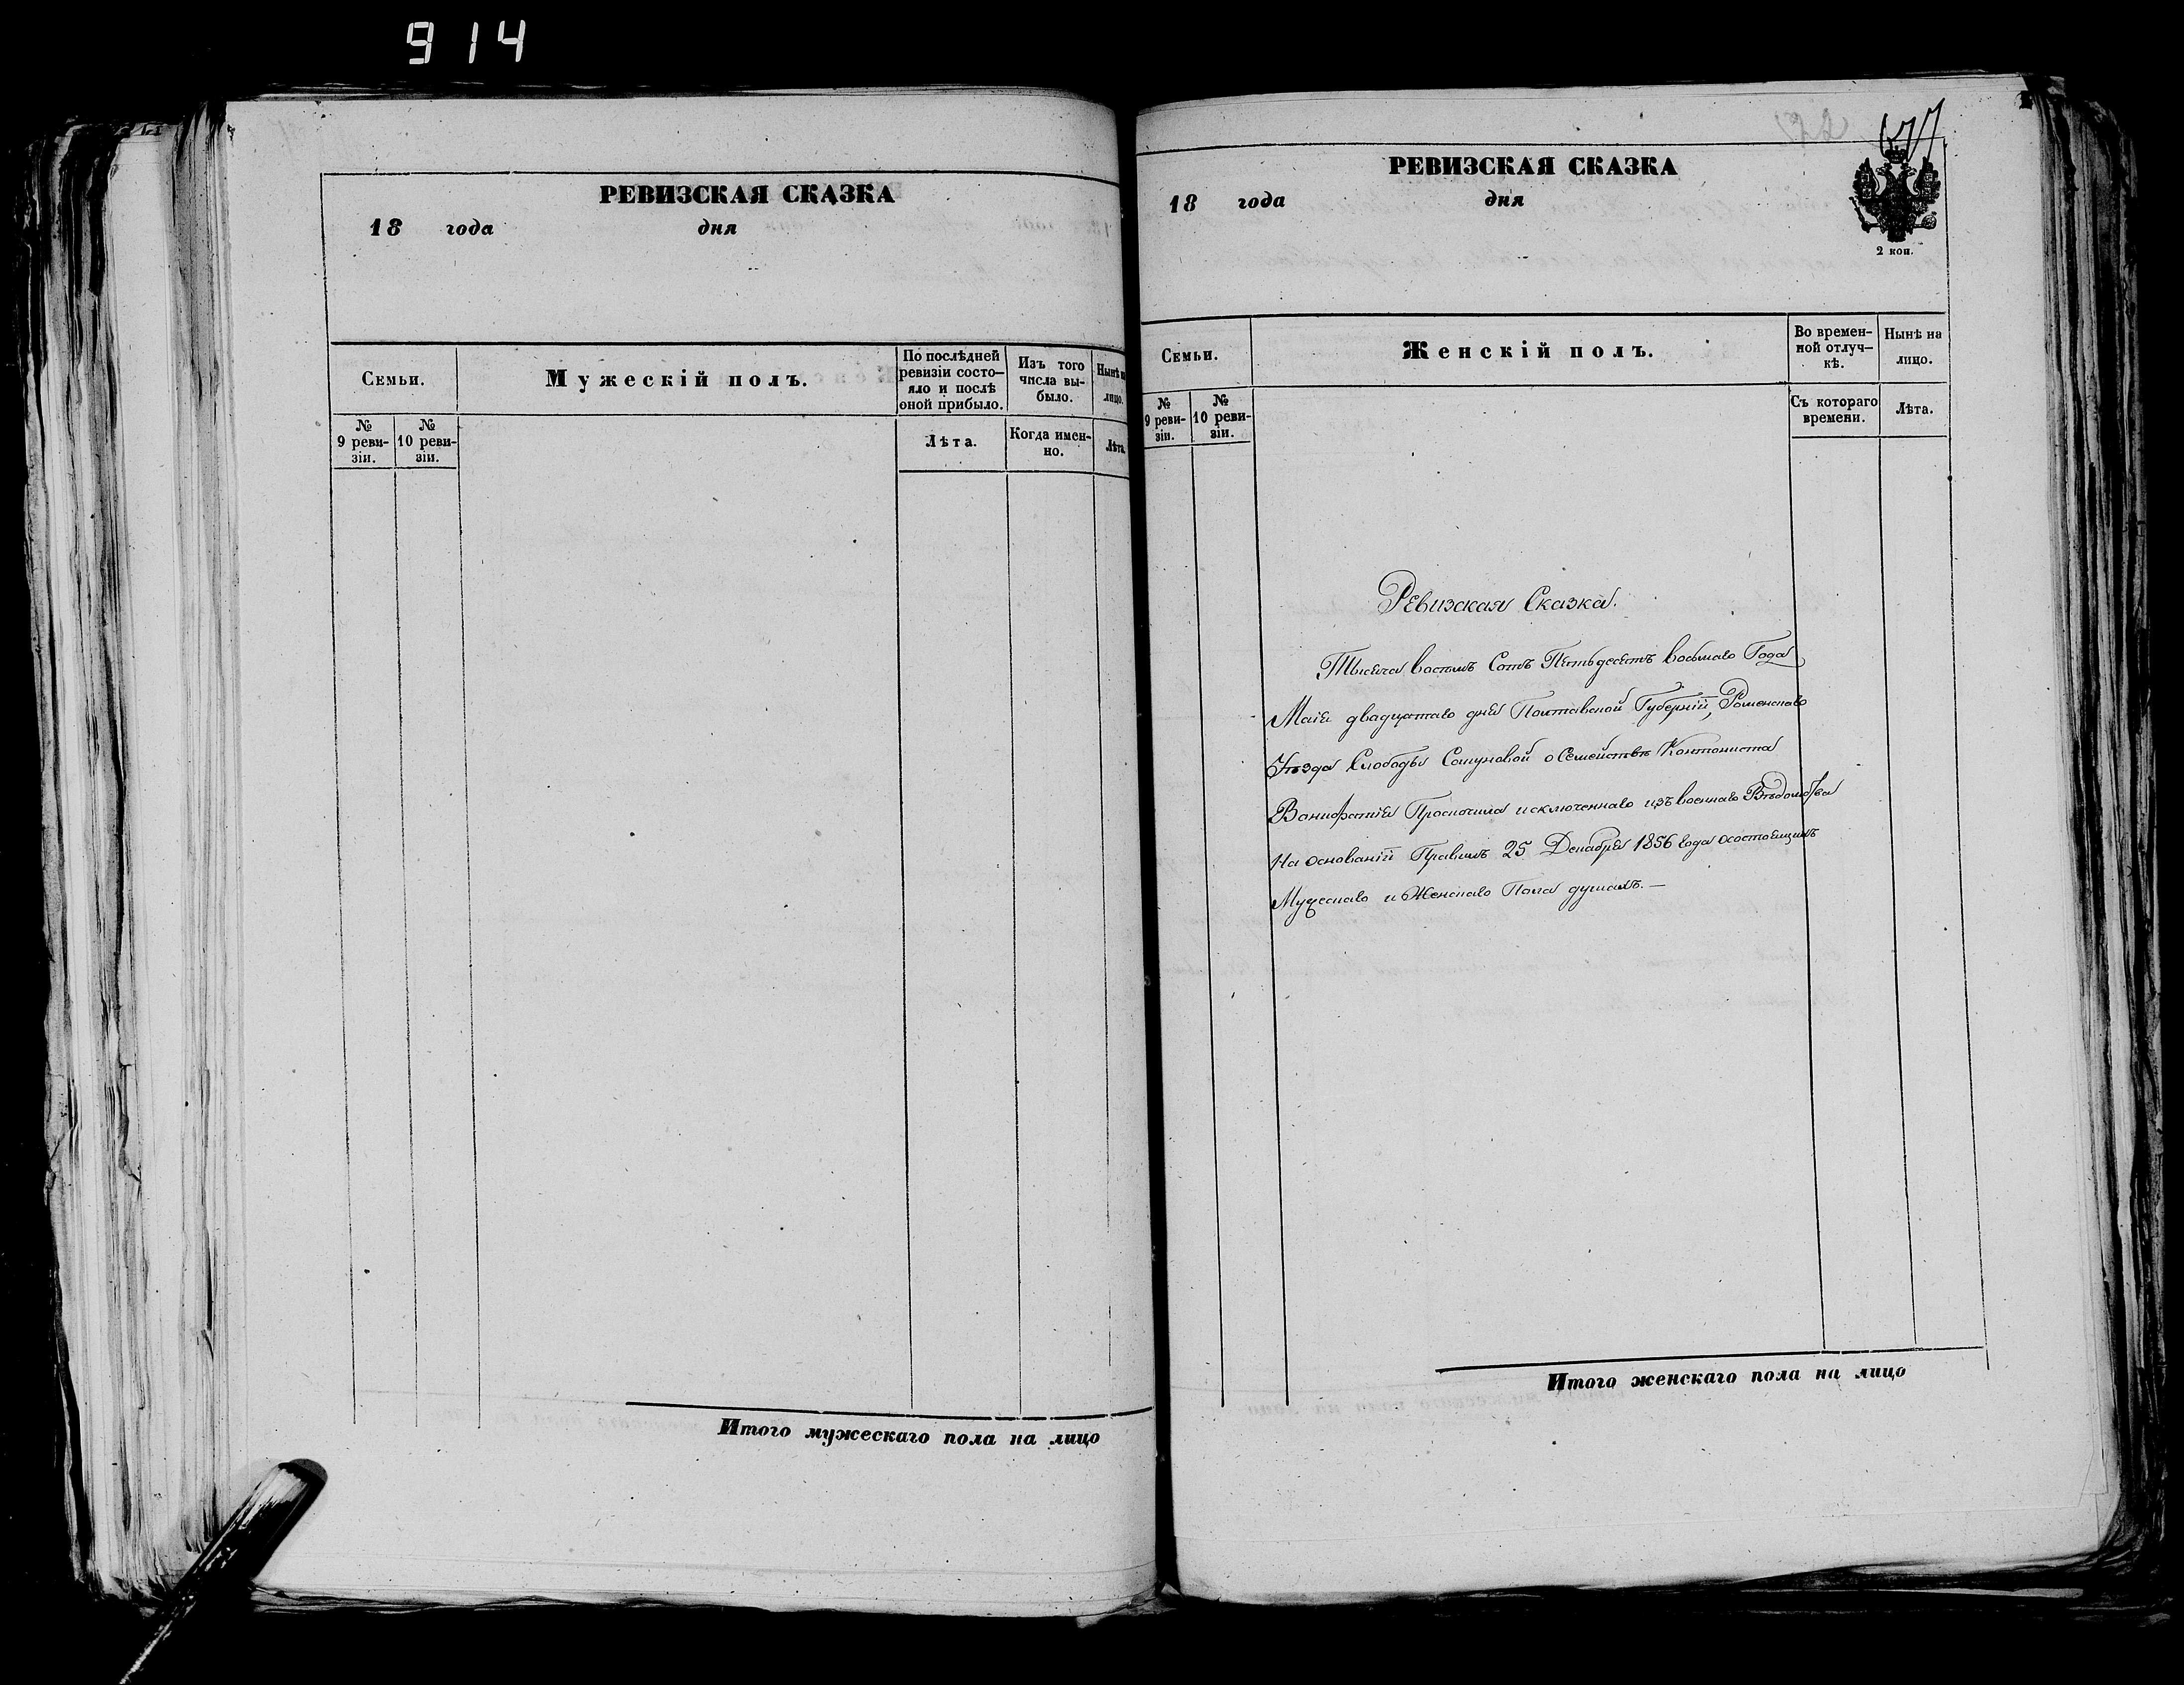 914
РЕВИЗСКАЯ СКАЗКА
18 года дня
Семьи.
Мужескій полъ.
По послѣдней
ревизіи состо-
яло и послѣ
оной прибыло.
Изъ того
числа вы-
было.
Нынѣ
лицо.
№
9 реви-
зіи.
№
10 реви-
зіи.
Лѣта.
Когда имен-
но.
Лѣта.
Итого мужескаго пола на лицо
677
РЕВИЗСКАЯ СКАЗКА
18 года дня
2 коп.
Семьи.
Женскій полъ.
Во времен-
ной отлуч-
кѣ.
Нынѣ на
лицо.
№
9 реви-
зіи.
№
10 реви-
зіи.
Съ котораго
времени.
Лѣта.
Ревизская Сказка.
Тысяча восемъ Сотъ Пятьдесятъ восьмаго Года
Маія двадцатаго дня Полтавской Губерніи, Роменскаго
Уѣзда Слободы о Семействѣ Кантониста
Вонифатія исключеннаго изъ военнаго Вѣдомства
На основаніи Правилъ 25 Декабря 1856 года осостоящихъ
Мужескаго и Женскаго Пола душахъ.—
Итого женскаго пола на лицо